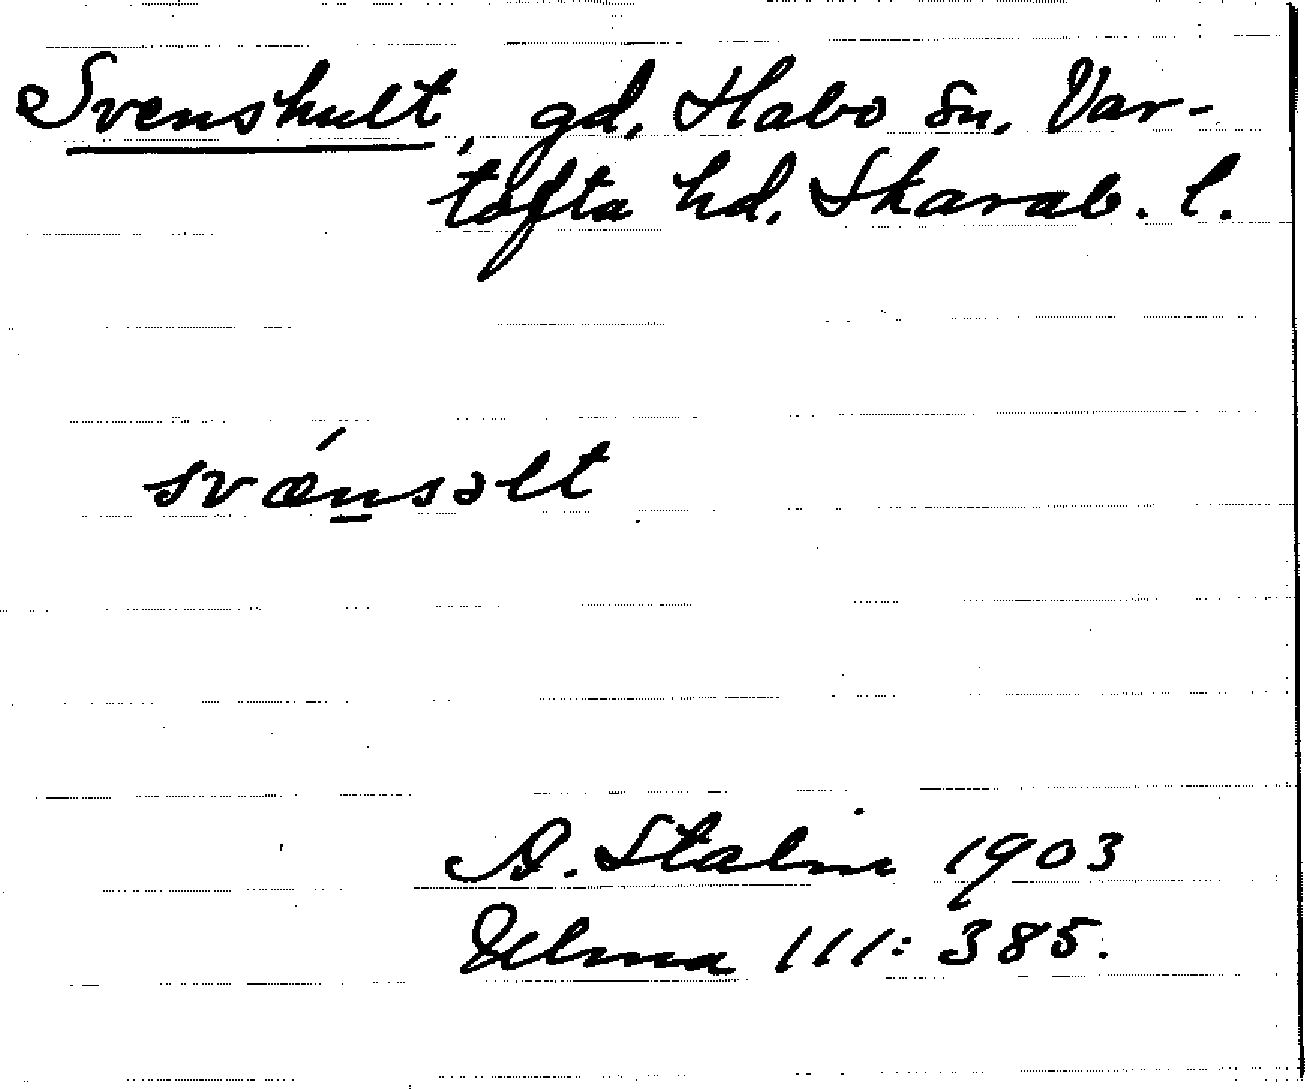 Svenshult, gd, Habo sn, Var-
tofta hd, Skarab. l.
svǽn̲səlt
A. Stalin 1903
Ulma 111: 385.